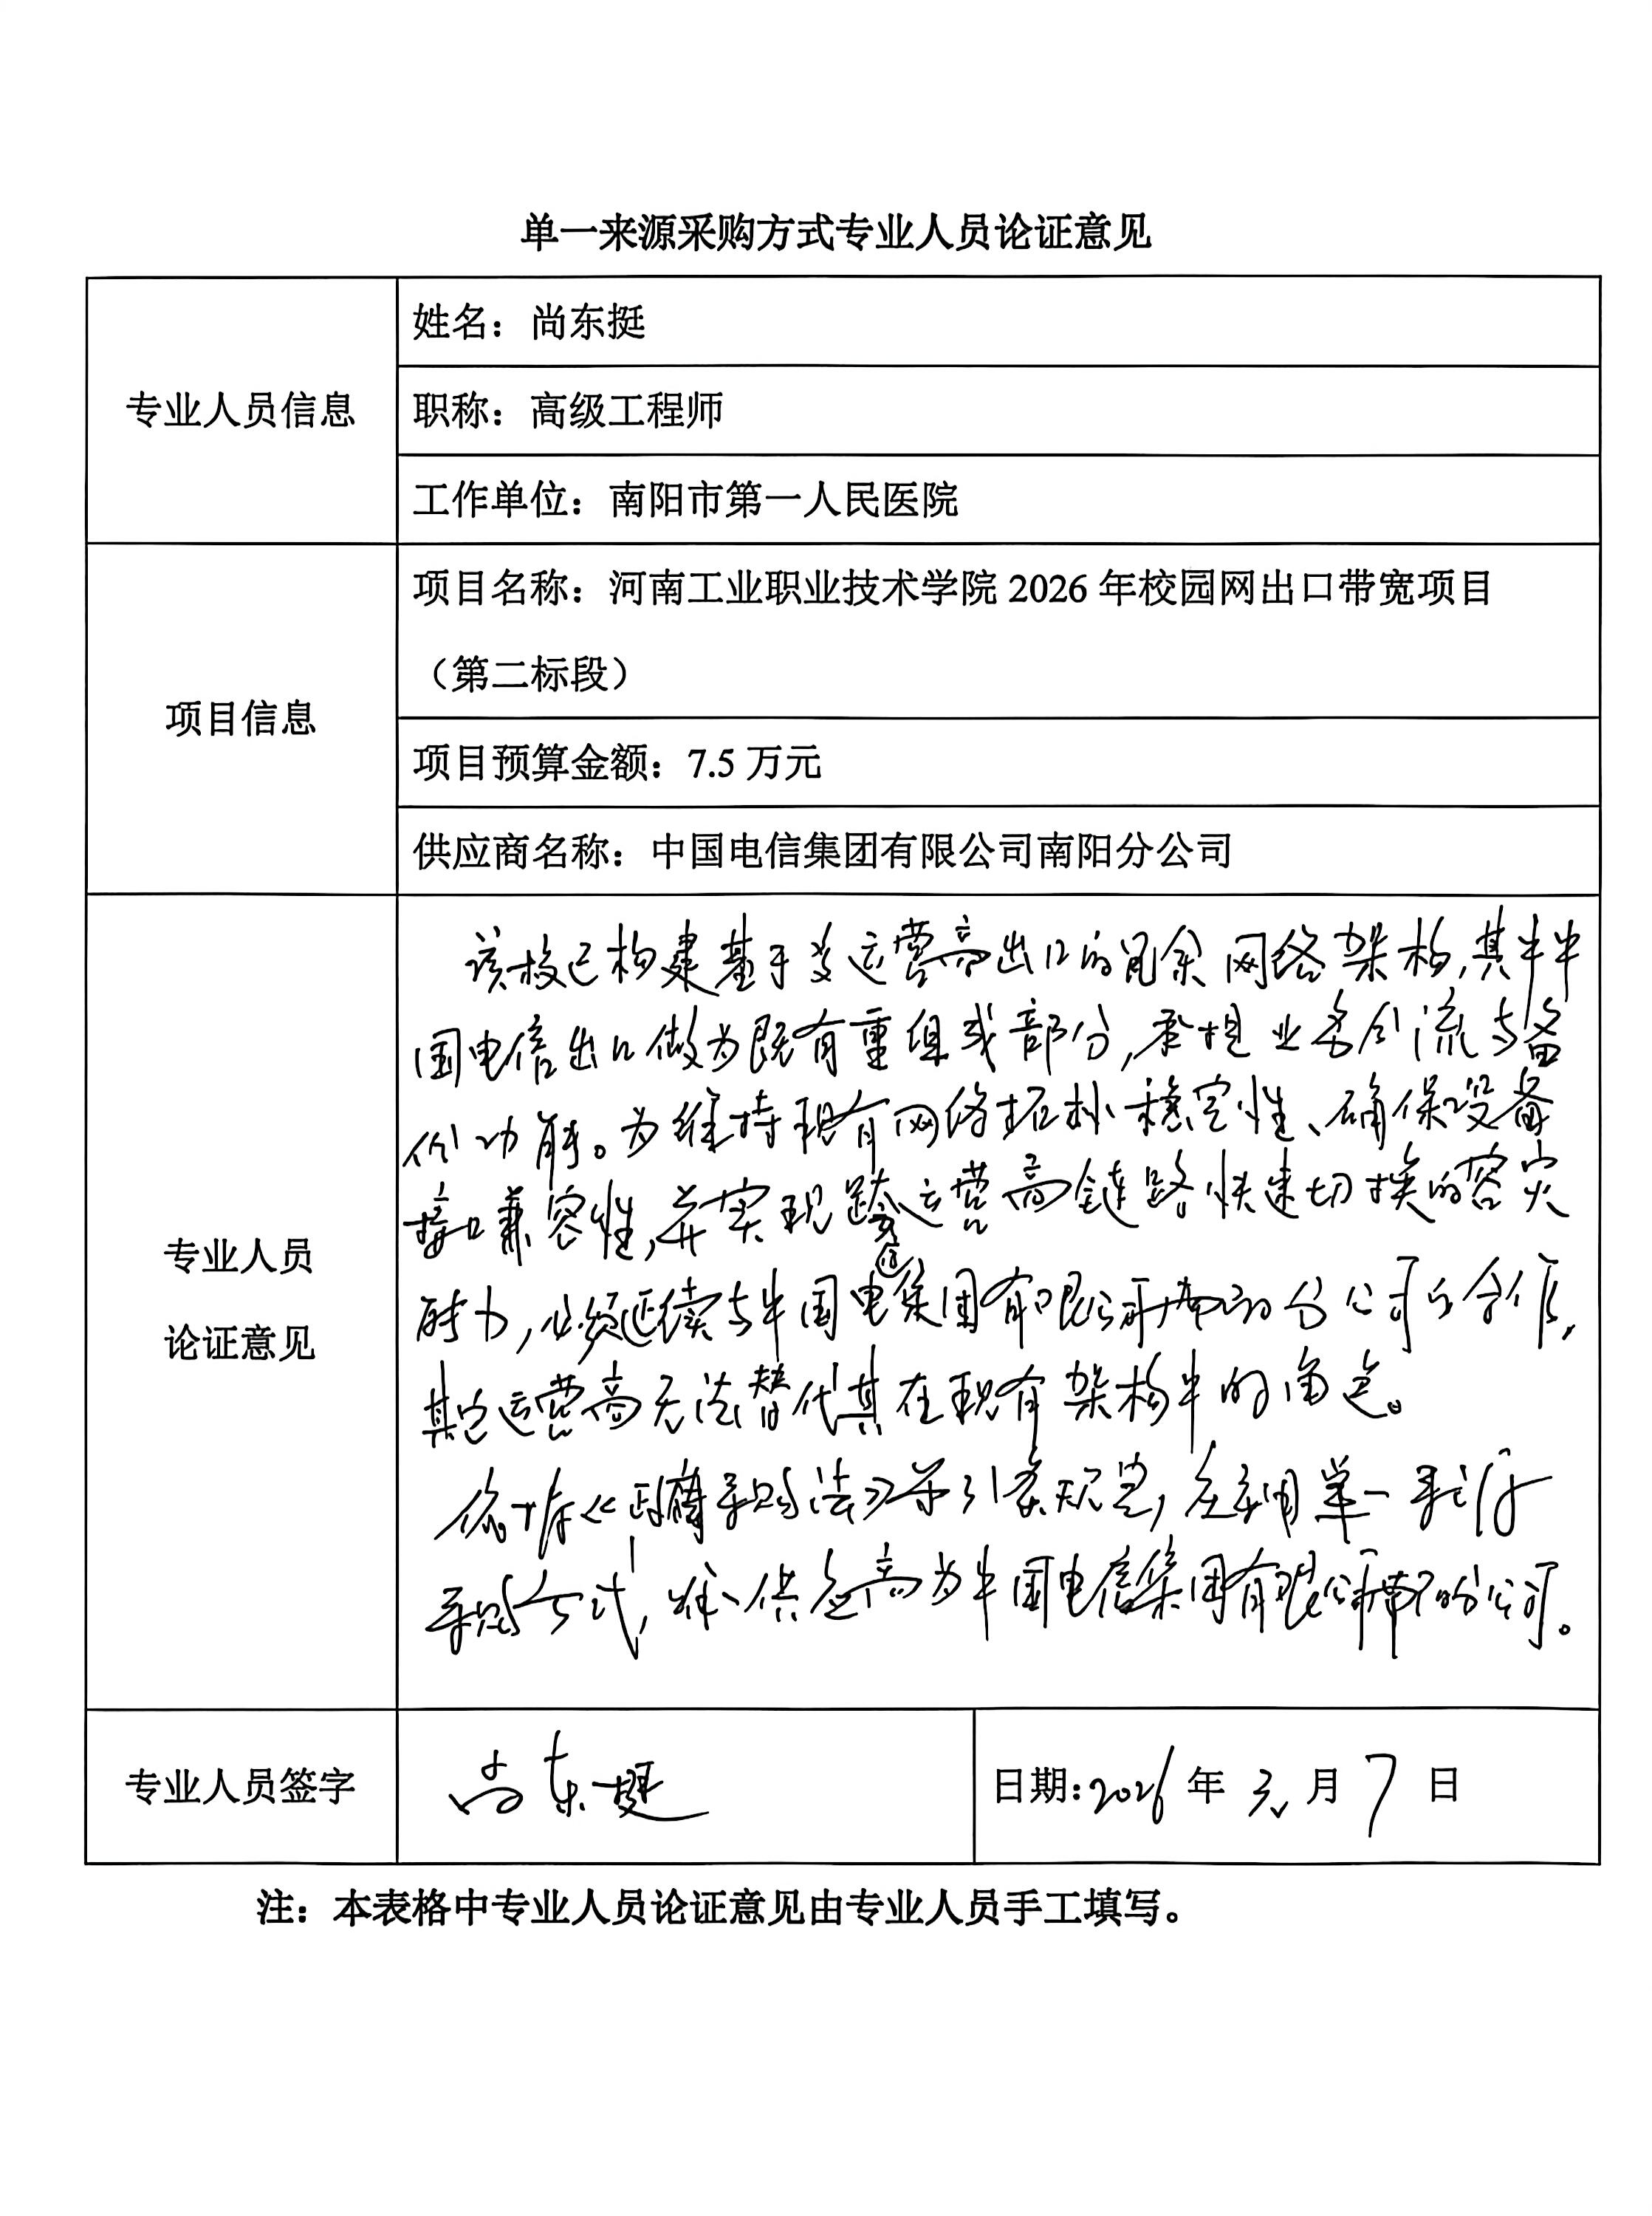 单一来源采购方式专业人员论证意见
专业人员信息
姓名：尚东挺
职称：高级工程师
工作单位：南阳市第一人民医院
项目信息
项目名称：河南工业职业技术学院 2026 年校园网出口带宽项目
（第二标段）
项目预算金额：7.5 万元
供应商名称：中国电信集团有限公司南阳分公司
专业人员
论证意见
该校已构建基于多运营商出口的冗余网络架构，其中中
国电信出口做为既有重组成部分，承担业务分流与备
份功能。为维持现有网络拓扑稳定性、确保设备
接口兼容性，并实现跨运营商链路快速切换的容灾
能力，必须延续与中国电信集团有限公司南阳分公司的合作，
其它运营商无法替代其在现有架构中的角色。
依据《政府采购法》第31条规定，应采用单一来源
采购方式，唯一供应商为中国电信集团有限公司南阳分公司。
专业人员签字
尚东挺
日期：2026 年 元 月 7 日
注：本表格中专业人员论证意见由专业人员手工填写。